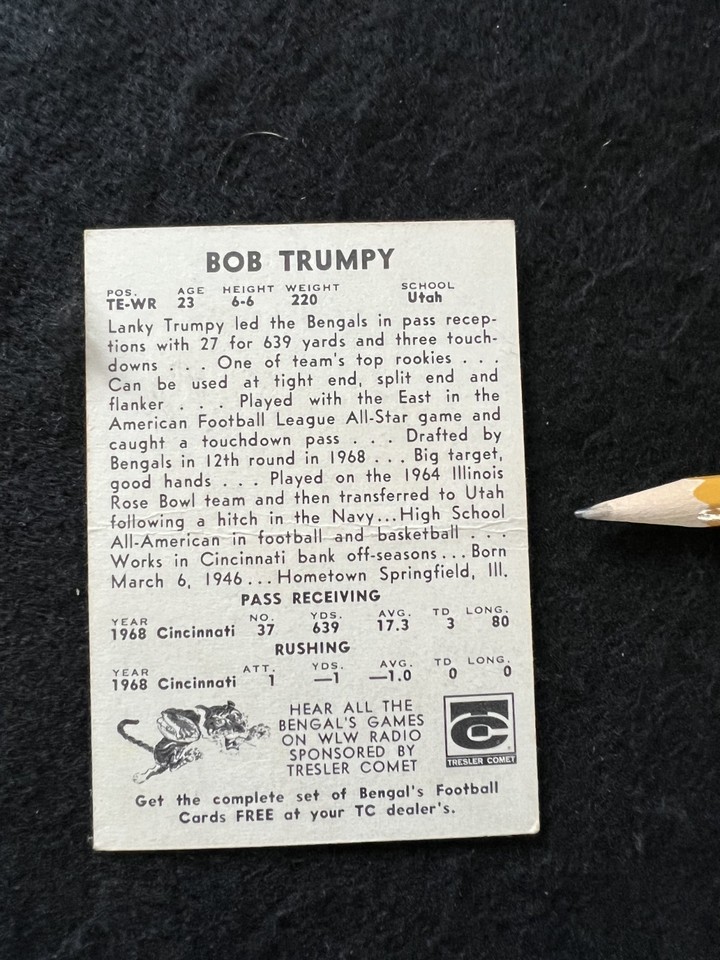 BOB TRUMPY
POS. AGE HEIGHT WEIGHT SCHOOL
TE-WR 23 6-6 220 Utah
Lanky Trumpy led the Bengals in pass recep-
tions with 27 for 639 yards and three touch-
downs . . . One of team's top rookies . . .
Can be used at tight end, split end and
flanker . . . Played with the East in the
American Football League All-Star game and
caught a touchdown pass . . . Drafted by
Bengals in 12th round in 1968 . . . Big target,
good hands . . . Played on the 1964 Illinois
Rose Bowl team and then transferred to Utah
following a hitch in the Navy...High School
All-American in football and basketball . . .
Works in Cincinnati bank off-seasons... Born
March 6, 1946...Hometown Springfield, Ill.
PASS RECEIVING
YEAR NO. YDS. AVG. TD LONG.
1968 Cincinnati 37 639 17.3 3 80
RUSHING
YEAR ATT. YDS. AVG. TD LONG.
1968 Cincinnati 1 —1 —1.0 0 0
HEAR ALL THE
BENGAL'S GAMES
ON WLW RADIO
SPONSORED BY
TRESLER COMET
TC
TRESLER COMET
Get the complete set of Bengal's Football
Cards FREE at your TC dealer's.